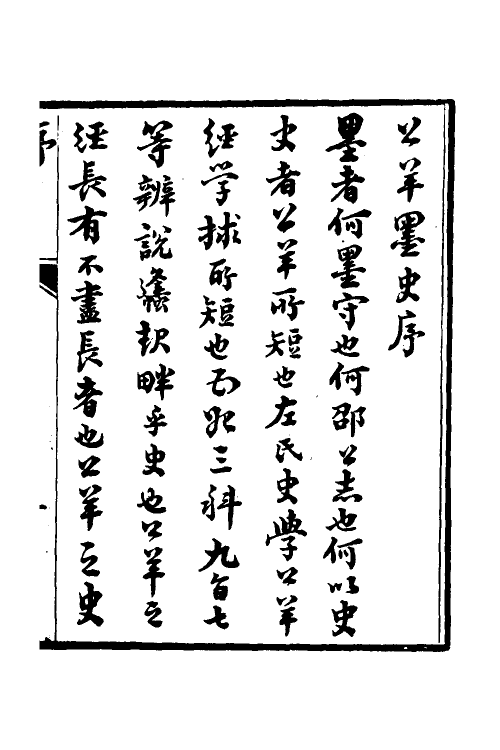 公羊墨史序
墨者何墨守也何邵公志也何以史
史者公羊所短也左氏史學公羊
經學揉所短也而況三科九旨七
等辨說龐歧畔乎史也公羊之
經長有不盡長者也公羊之史
序